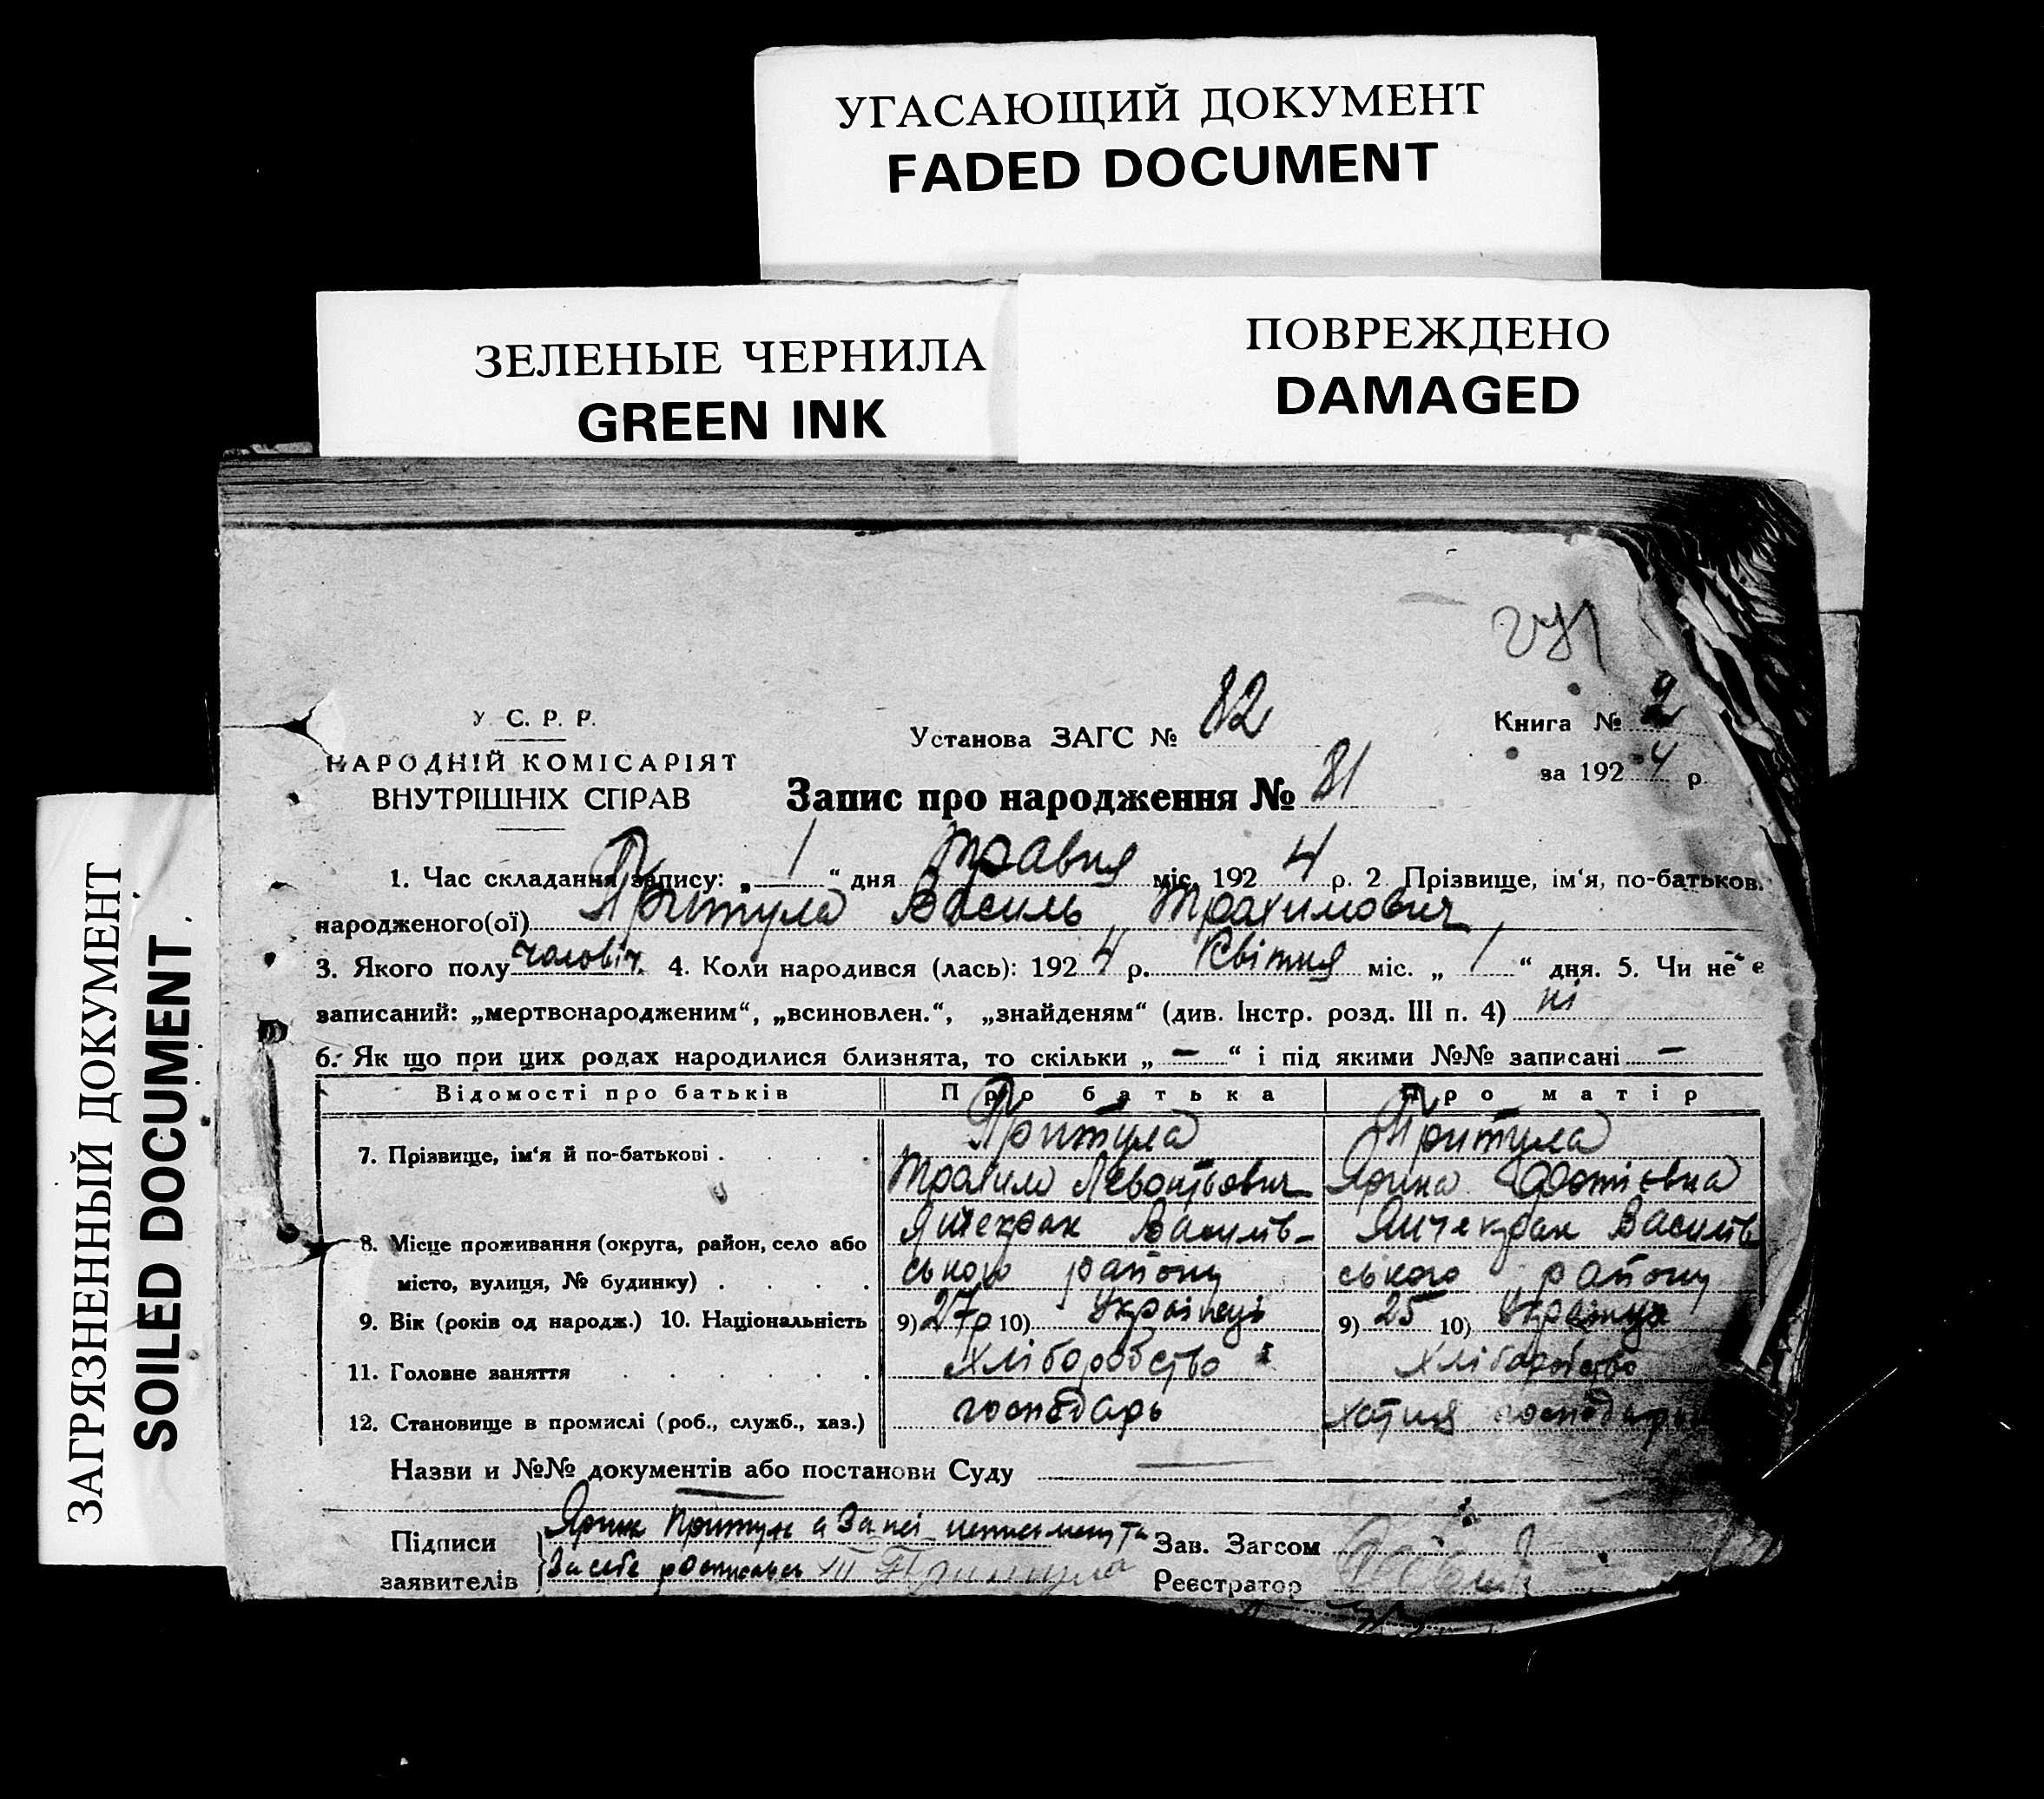 УГАСАЮЩИЙ ДОКУМЕНТ
FADED DOCUMENT
ЗЕЛЕНЫЕ ЧЕРНИЛА
GREEN INK
ПОВРЕЖДЕНО
DAMAGED
ЗАГРЯЗНЕННЫЙ ДОКУМЕНТ
SOILED DOCUMENT
У С. Р. Р.
НАРОДНІЙ КОМІСАРІЯТ
ВНУТРІШНІХ СПРАВ
Установа ЗАГС № 82
Книга № 2
за 1924 р.
Запис про народження № 81
1. Час складання запису: „ 1 “ дня травня міс. 1924 р. 2 Прізвище, ім'я, по-батьков.
народженого(ої) Притула Василь Трахимович
3. Якого полу чоловіч. 4. Коли народився (лась): 1924 р. Квітня міс. „ 1 “ дня. 5. Чи не є
записаний: „мертвонародженим“, „всиновлен.“, „знайденям“ (див. Інстр. розд. III п. 4) ні
6. Як що при цих родах народилися близнята, то скільки „ — “ і під якими №№ записані —
Відомості про батьків Про батька Про матір
7. Прізвище, ім'я й по-батькові Притула Притула
Левонтьович
8. Місце проживання (округа, район, село або Василів- Василів
місто, вулиця, № будинку) ського району ського району
9. Вік (років од народж.) 10. Національність 9) 27 р 10) Українці 9) 25 10) Українця
11. Головне заняття Хліборобство Хліборобство
12. Становище в промислі (роб., служб., хаз.) господарь хатня
Назви и №№ документів або постанови Суду —
Підписи Притула Зав. Загсом
заявителів За себе Притула Реєстратор